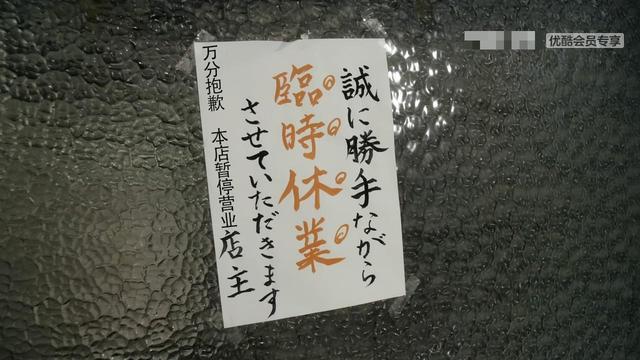 誠に勝手ながら
臨時休業
させていただきます
店主
万分抱歉 本店暂停营业
优酷会员专享